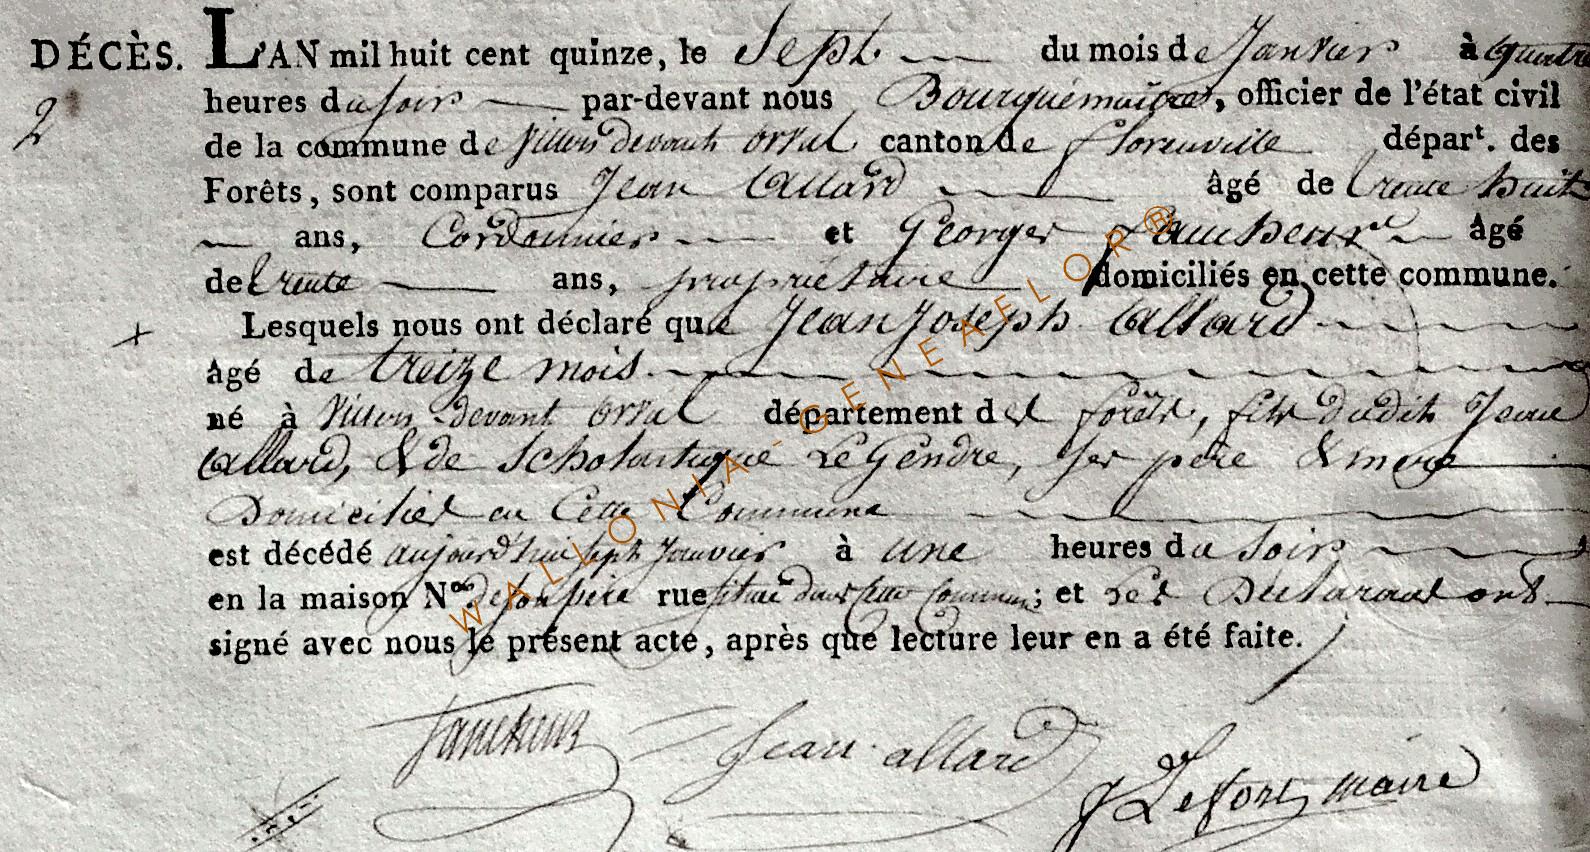 DÉCÈS. L'AN mil huit cent quinze, le Sept du mois de Janvier à quatre
2 heures du soir par-devant nous Bourguémaitre, officier de l'état civil
de la commune de Villers devant orval canton de florenville dépar^t. des
Forêts, sont comparus Jean Allard âgé de trente huit
ans, Cordonnier et George âgé
de trente ans, propriétaire domiciliés en cette commune.
+ Lesquels nous ont déclaré que Jean Joseph Allard
âgé de treize mois
né à Villers devant orval département des forêts, fils dudit Jean
Allard, & de Scholastique LeGendre, ses père & mere
Domiciliés en Cette Commune
est décédé aujourd'hui sept Janvier à une heures du soir
en la maison N^os de son père rue située dans cette Commune; et les Déclarans ont
signé avec nous le présent acte, après que lecture leur en a été faite.
Jean allard
J Lefort maire
WALLONIA-GENEAFLOR®